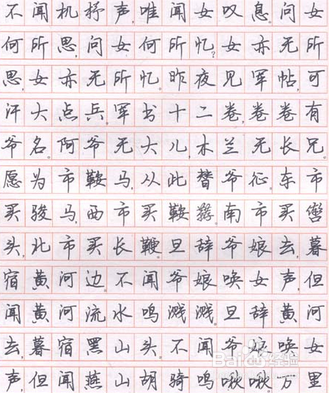 不闻机杼声唯闻女叹息问女
何所思问女何所忆女亦无所
思女亦无所忆昨夜见军帖可
汗大点兵军书十二卷卷卷有
爷名阿爷无大儿木兰无长兄
愿为市鞍马从此替爷征东市
买骏马西市买鞍鞯南市买辔
头北市买长鞭旦辞爷娘去暮
宿黄河边不闻爷娘唤女声但
闻黄河流水鸣溅溅旦辞黄河
去暮宿黑山头不闻爷娘唤女
声但闻燕山胡骑鸣啾啾万里